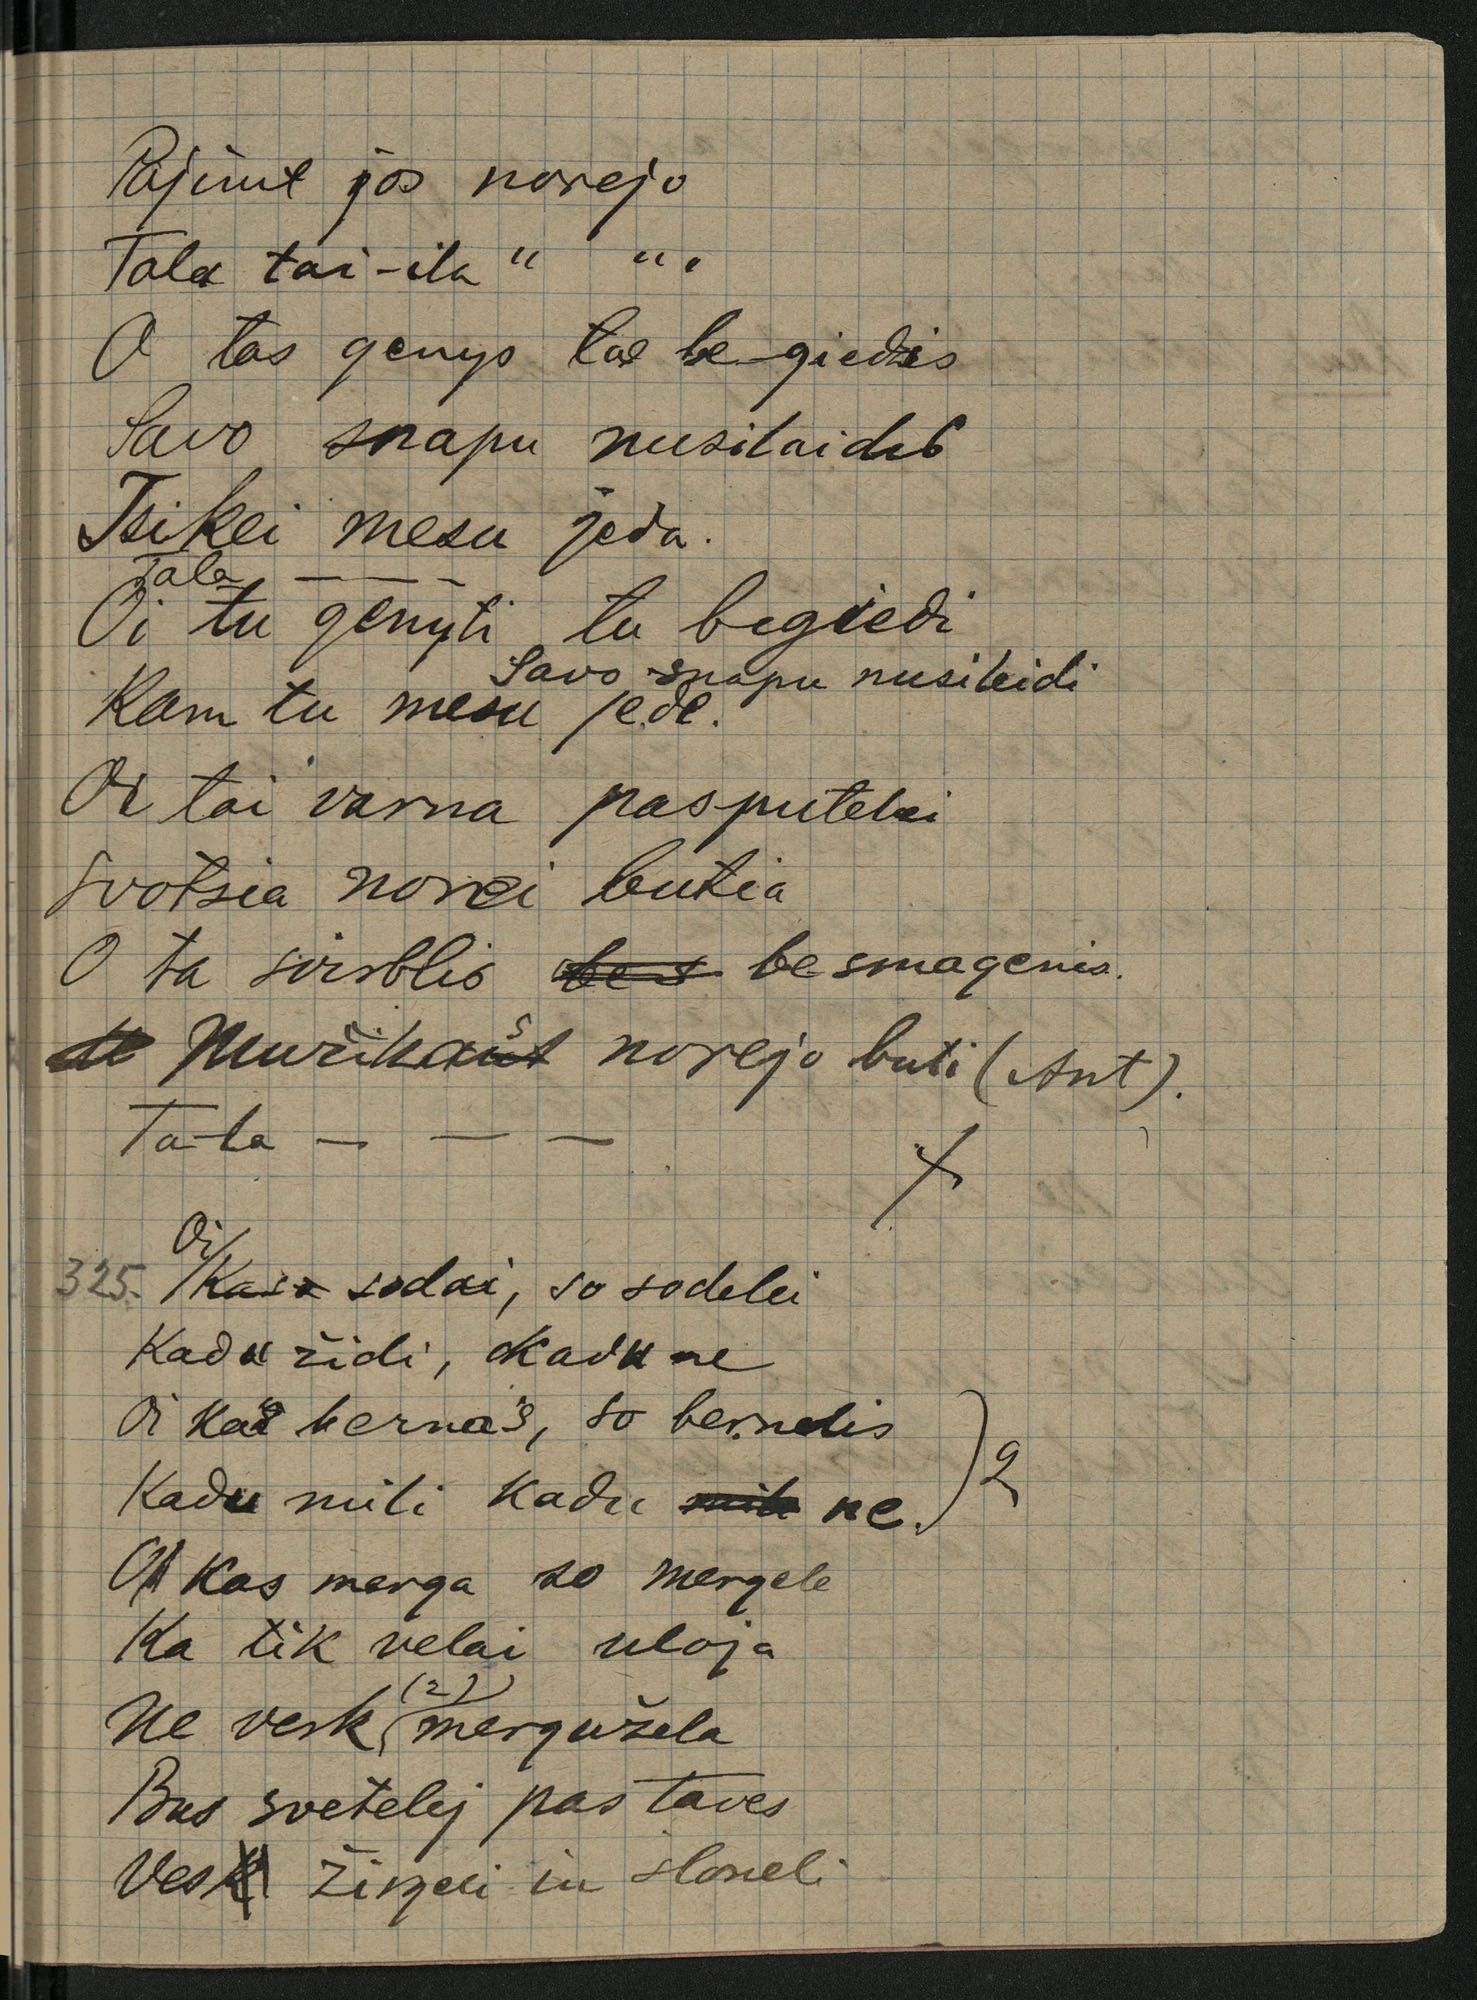 Pajimt jos norejo
Tala tai-ila " " "
O tas genys tas be-giedis
Savo snapu nusilaideb
Tsikei mesu jeda.
Tala — — —
Oi tu genyti tu begiedi
Savo snapu nusileidi
Kam tu mesu jede.
Oi tai varna pasputelei
svotsia norei butia
O ta svirblis be smagenis.
Muzika norejo buti (Ant).
Ta-la — — —
Oi
325. Kas sodai, so sodelei
Kadu židi, okadu ne
Oi kas bernas, so bernelis
Kadu mili kadu ne. ) 2
Oi kas merga so mergele
Ka tik velai uloja
Ne verk (2) mergužela
Bus svetelej pas taves
Ves žirgeli in sloneli